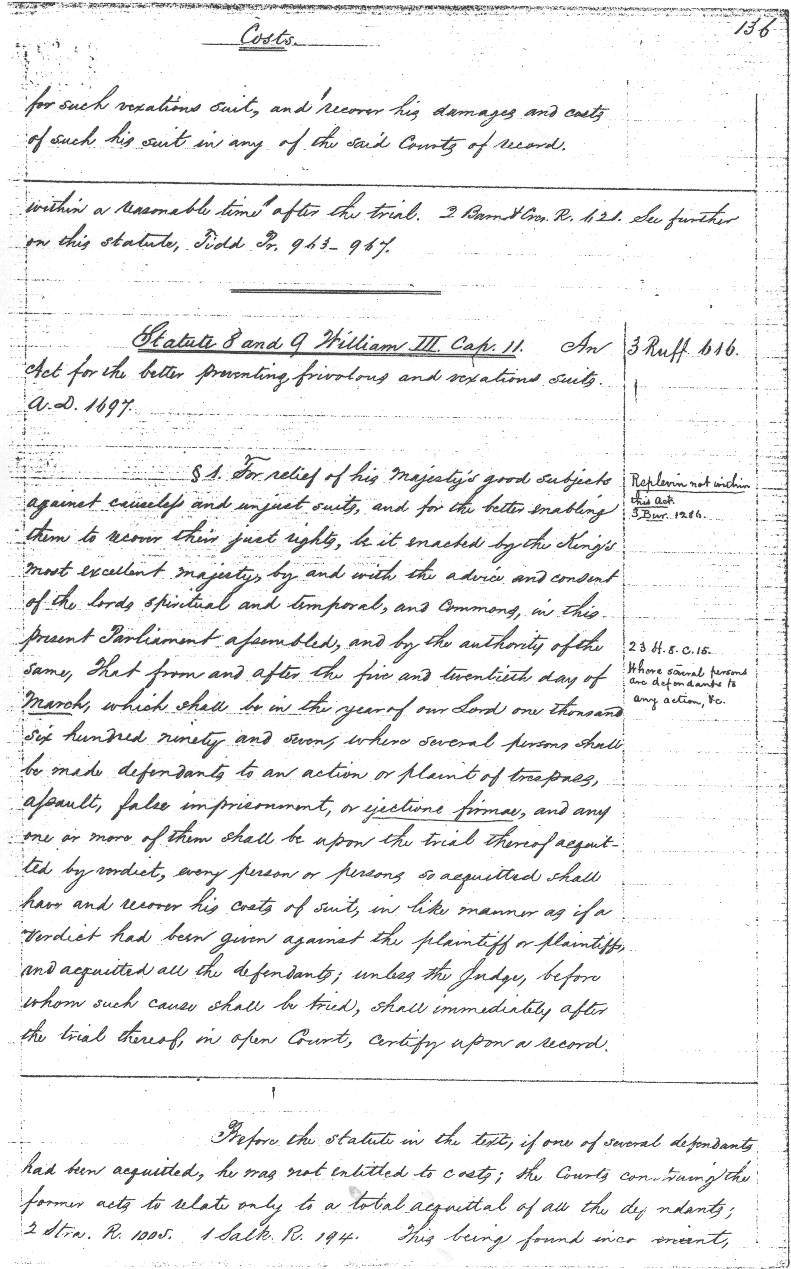 136
Costs.
for such vexatious suit, and recover his damages and costs
of such his suit in any of the said Courts of record.
within a reasonable time after the trial. 2 Barn & Cres. R. 621. See further
on this statute, Tidd Pr. 963-967.
Statute 8 and 9 William III. Cap. 11. An
3 Ruff 616.
Act for the better preventing frivolous and vexatious suits.
A.D. 1697.
§ 1. For relief of his Majesty's good subjects
Replevin not within
against causeless and unjust suits, and for the better enabling
this Act.
3 Bur. 1286.
them to recover their just rights, be it enacted by the King's
most excellent majesty, by and with the advice and consent
of the lords spiritual and temporal, and Commons, in this
present Parliament assembled, and by the authority of the
23 H. 8. C. 15.
same, That from and after the five and twentieth day of
Where several persons
are defendants to
March, which shall be in the year of our Lord one thousand
any action, &c.
six hundred ninety and seven, where several persons shall
be made defendants to an action or plaint of trespass,
assault, false imprisonment, or ejectione firmae, and any
one or more of them shall be upon the trial thereof acquit-
ted by verdict, every person or persons so acquitted shall
have and recover his costs of suit, in like manner as if a
verdict had been given against the plaintiff or plaintiffs,
and acquitted all the defendants; unless the Judge, before
whom such cause shall be tried, shall immediately after
the trial thereof, in open Court, certify upon a record.
Before the statute in the text, if one of several defendants
had been acquitted, he was not entitled to costs; the Courts con truing the
former acts to relate only to a total acquittal of all the de ndants;
2 Stra. R. 1005. 1 Salk. R. 194. This being found inco